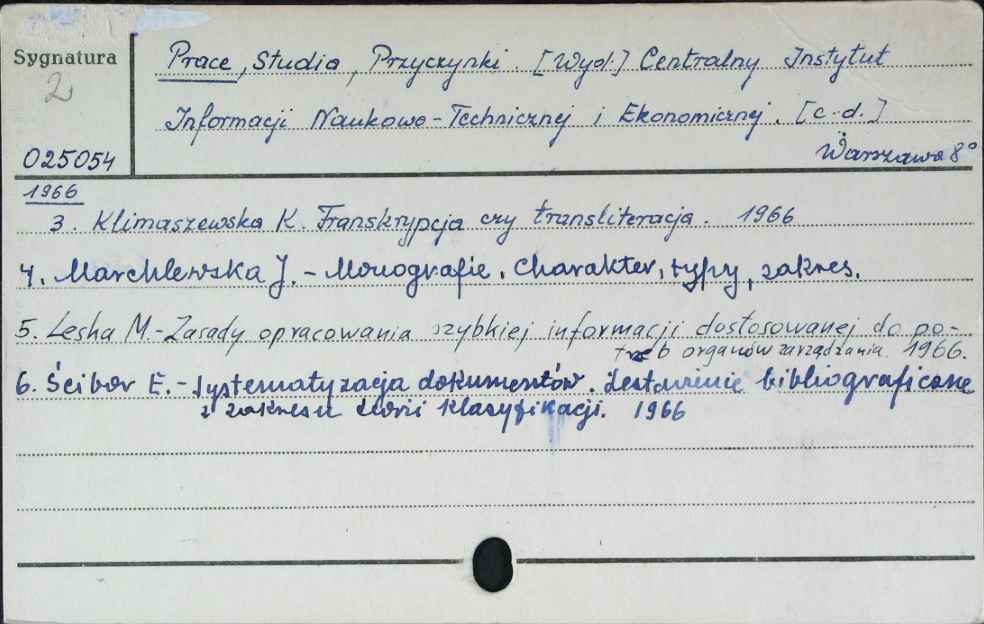 Sygnatura
2
025054
Prace, Studia, Przyczynki. [Wyd.] Centralny Instytut
Informacji Naukowo-Technicznej i Ekonomicznej. [c.d.]
Warszawa 8°
1966
3. Klimaszewska K. Transkrypcja czy transliteracja. 1966
4. Marchlewska J. - Monografie. Charakter, typy, zakres.
5. Leska M. - Zasady opracowania szybkiej informacji dostosowanej do po-
trzeb organów zarządzania. 1966.
6. Ścibor E. - Systematyzacja dokumentów. Zestawienie bibliograficzne
z zakresu teorii klasyfikacji. 1966